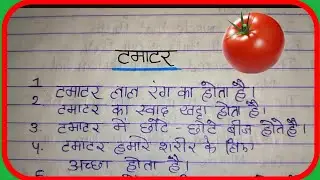 टमाटर
1 टमाटर लाल रंग का होता है।
2. टमाटर का स्वाद खट्टा होता है।
3. टमाटर में छोटे - छोटे बीज होते हैं।
4. टमाटर हमारे शरीर के लिए
अच्छा होता है।
5